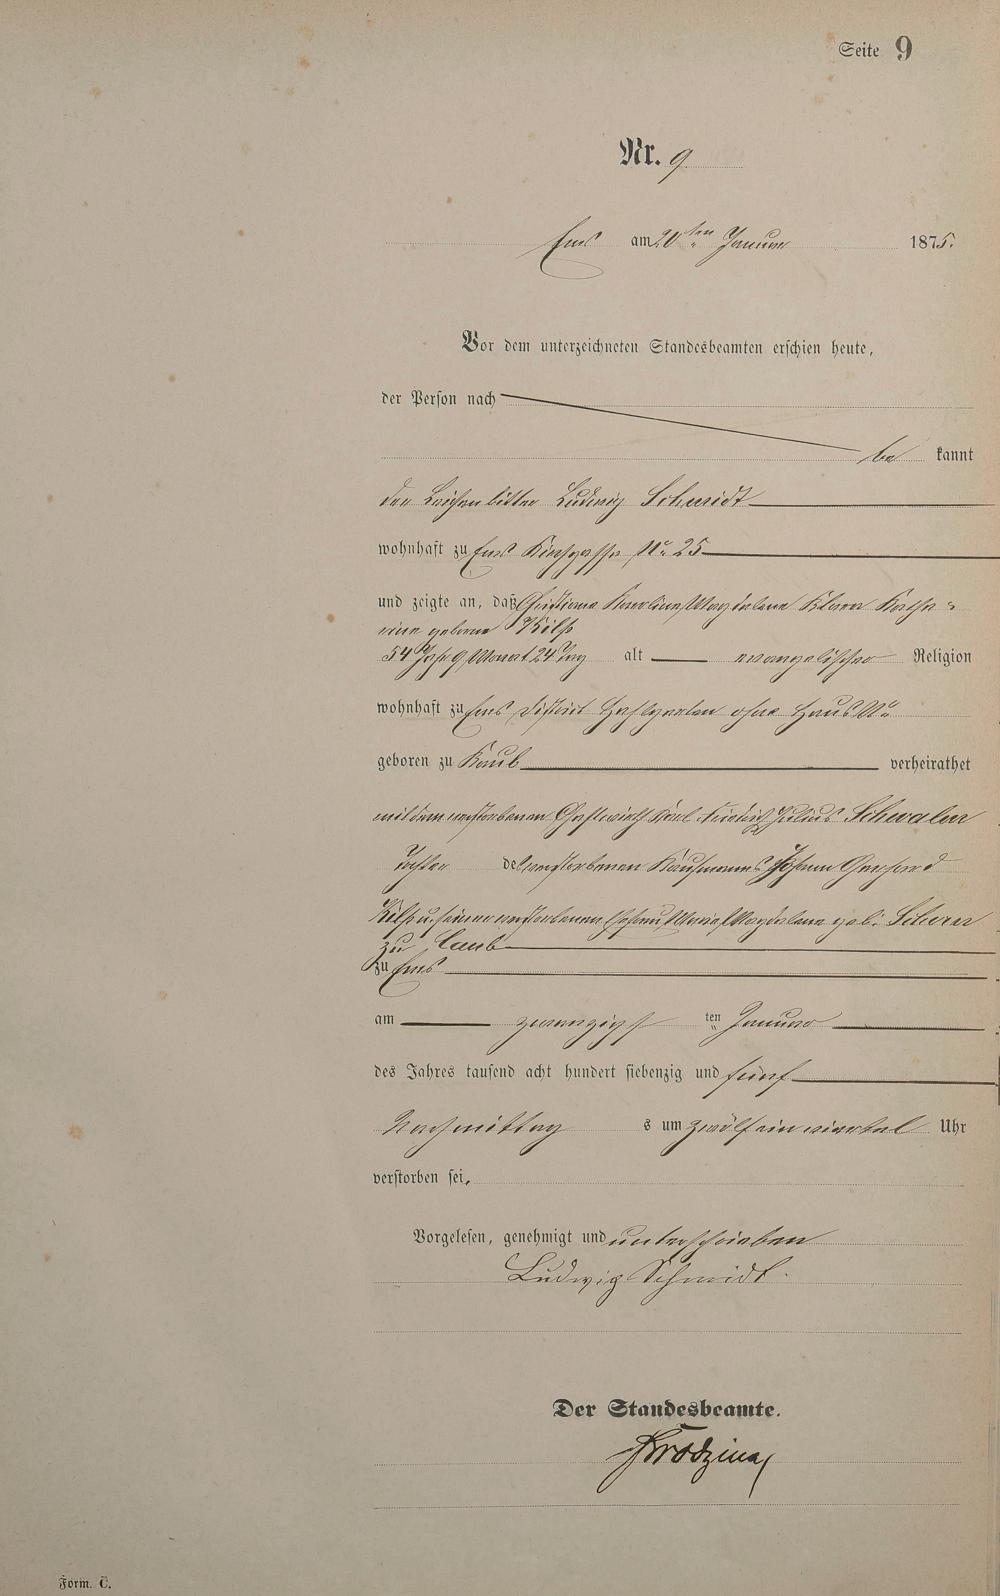 Seite 9
Nr. 9
Ems am 20ten Januar 1875.
Vor dem unterzeichneten Standesbeamten erschien heute,
der Person nach
be kannt
der Leichenbitter Ludwig Schmidt
wohnhaft zu Ems Kirchgasse No 25
und zeigte an, daß Christiane Karoline Magdalena Klara Katha=
rina geborne Kilp
54 Jahr 9 Monat 24 Tag alt evangelischer Religion
wohnhaft zu Ems District ohne Haus No
geboren zu Kaub verheirathet
mit dem verstorbenen Gastwirth Karl Friedrich Julius
Tochter des verstorbenen Kaufmanns Johann Gerhard
Kilp u. seiner verstorbenen Ehefrau Maria Magdalena geb.
zu Caub
zu Ems
am zwanzigst ten Januar
des Jahres tausend acht hundert siebenzig und fünf
Nachmittag s um zwölf ein viertel Uhr
verstorben sei.
Vorgelesen, genehmigt und unterschrieben
Ludwig Schmidt.
Der Standesbeamte.
Form. C.